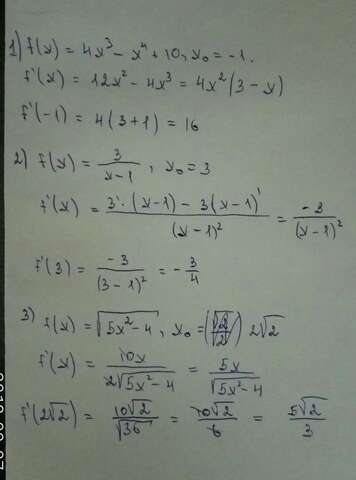 1) f(x) = 4x³ - x⁴ + 10, x₀ = -1.
f'(x) = 12x² - 4x³ = 4x²(3 - x)
f'(-1) = 4(3+1) = 16
2) f(x) = 3/(x-1), x₀ = 3
f'(x) = (3'·(x-1) - 3(x-1)')/(x-1)² = -3/(x-1)²
f'(3) = -3/(3-1)² = -3/4
3) f(x) = √(5x²-4), x₀ = 2√2
f'(x) = 10x/(2√(5x²-4)) = 5x/√(5x²-4)
f'(2√2) = 10√2/√36 = 10√2/6 = 5√2/3